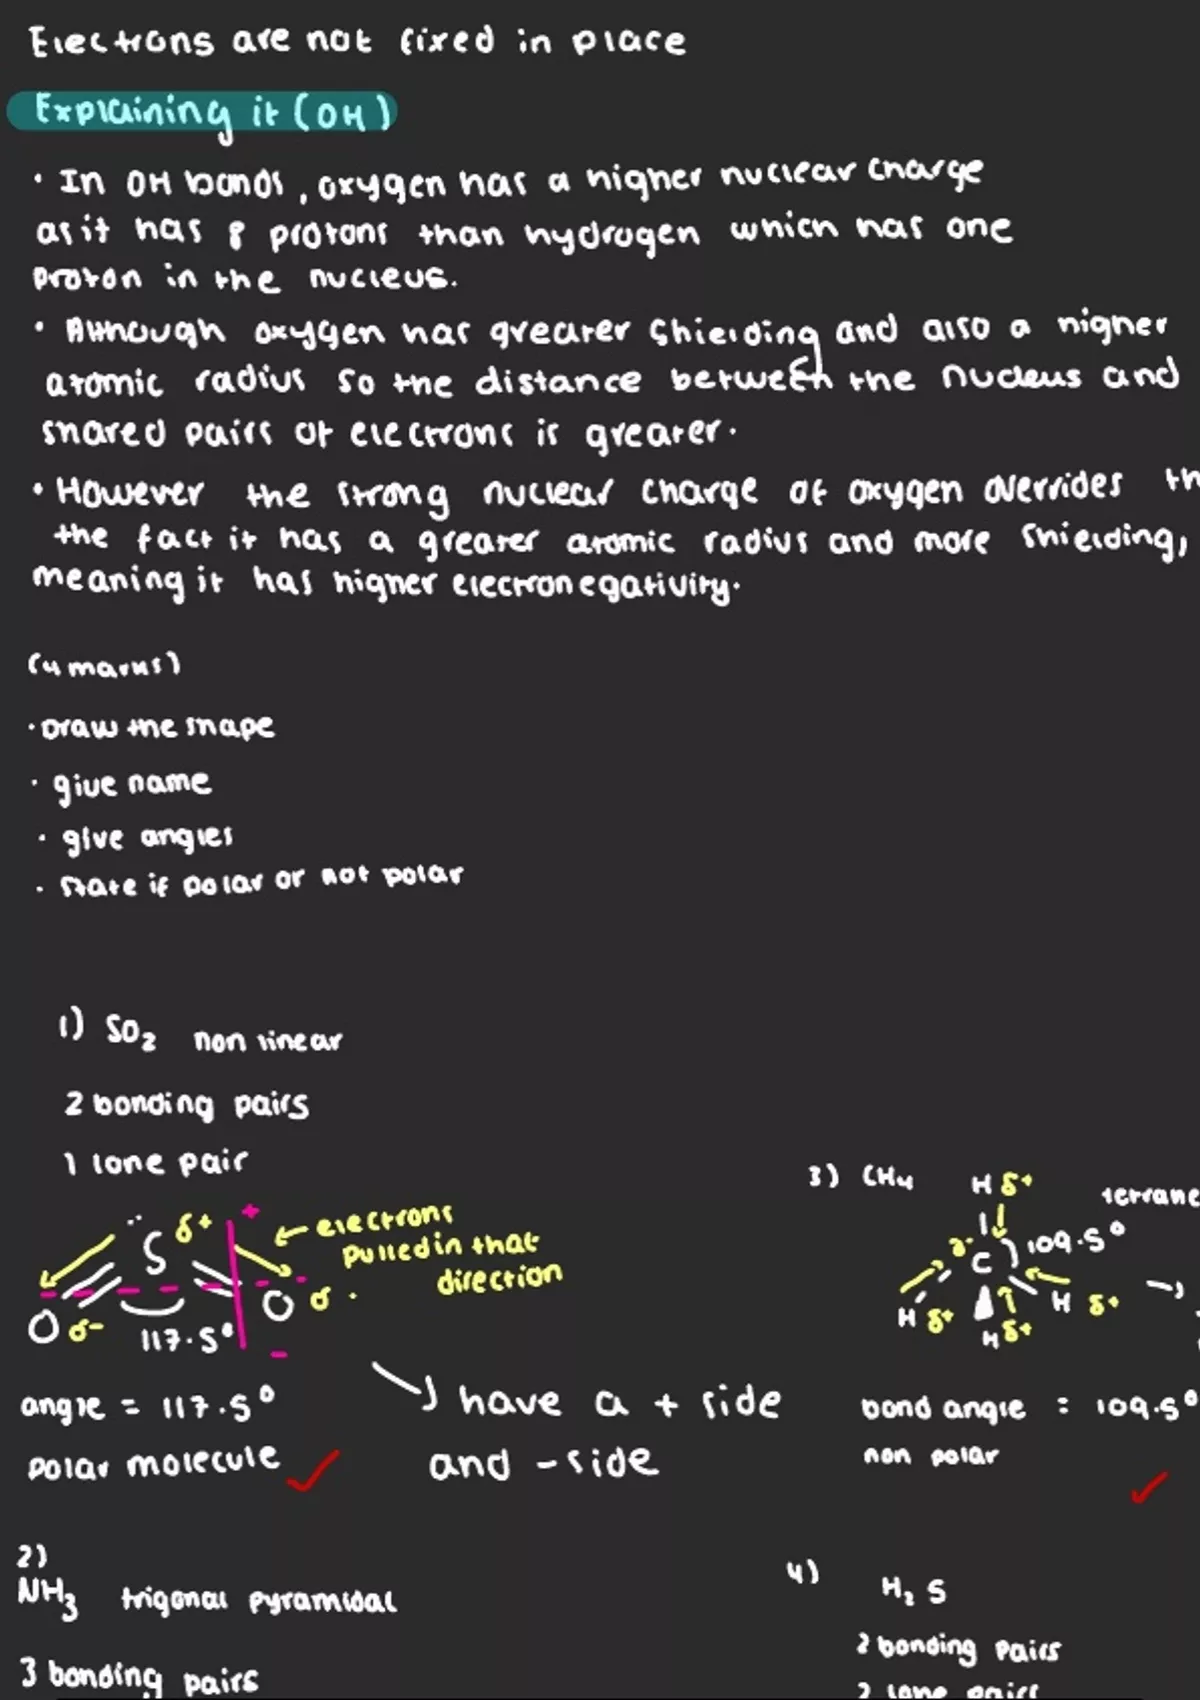 Electrons are not fixed in place
Explaining it (OH)
• In OH bonds, oxygen has a higher nuclear charge
as it has 8 protons than hydrogen which has one
proton in the nucleus.
• Although oxygen has greater shielding and also a higher
atomic radius so the distance between the nucleus and
shared pairs of electrons is greater.
• However the strong nuclear charge of oxygen overrides th
the fact it has a greater atomic radius and more shielding,
meaning it has higher electronegativity.
(4 marks)
• Draw the shape
• give name
• give angles
• state if polar or not polar
1) SO2 non linear
2 bonding pairs
1 lone pair
S δ+ +
← electrons
pulled in that
direction
O δ- 117.5° O δ -
angle = 117.5°
polar molecule
have a + side
and - side
3) CH4 tetrahe
H δ+
δ- C 109.5°
H δ+ H δ+ H δ+
bond angle = 109.5°
non polar
2)
NH3 trigonal pyramidal
3 bonding pairs
4) H2S
2 bonding pairs
2 lone pairs